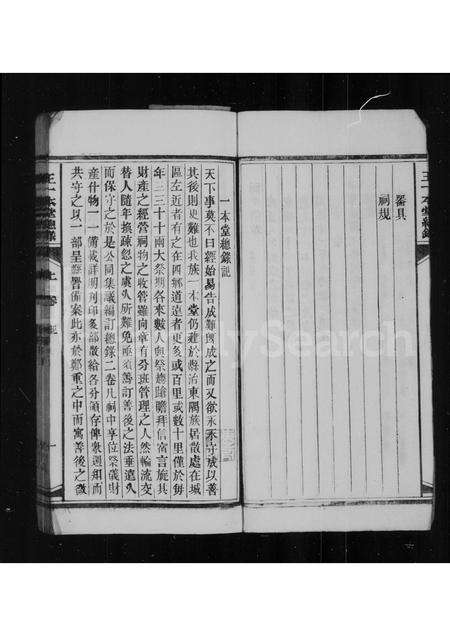 器具
祠規
一本堂總錄記
天下事莫不曰經始易告成難既成之而又欲永不守成以善
其後則更難也我族一本堂仍建於縣治東閣族居散處在城
區左近者有之在四鄉道遠者更多或百里或數十里僅於每
年三三十十兩大祭期各來數人與祭燕餘瞻拜信宿言旋其
財產之經營祠物之收管雖向章有分班管理之人然輪流交
替人隨年換疎忽之虞久所難免亟須籌訂善後之法垂遠久
而保守之於是公同集議編訂總錄二卷凡祠中享位祭儀財
產什物一一備載詳明刊印多部散給各分領存俾衆週知而
共守之以一部呈縣警備案此亦於鄭重之中而寓善後之微
王一本堂總錄
上卷
記
一
MySearch